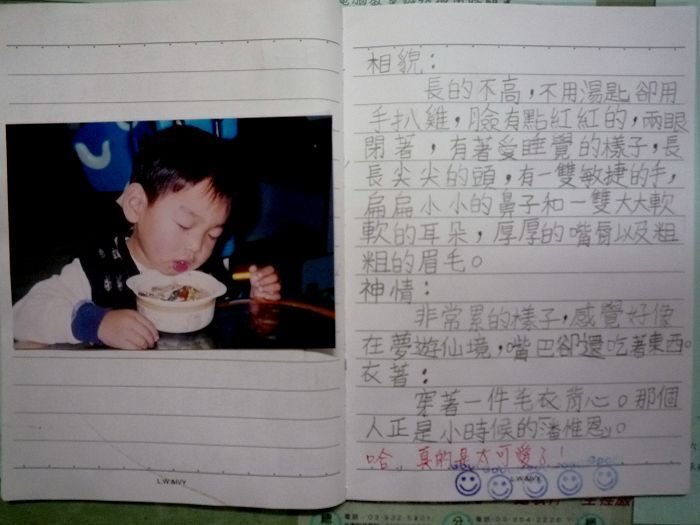 相貌：
長的不高，不用湯匙卻用
手扒雞，臉有點紅紅的，兩眼
閉著，有著愛睡覺的樣子，長
長尖尖的頭，有一雙敏捷的手，
扁扁小小的鼻子和一雙大大軟
軟的耳朵，厚厚的嘴唇以及粗
粗的眉毛。
神情：
非常累的樣子，感覺好像
在夢遊仙境，嘴巴卻還吃著東西。
衣著：
穿著一件毛衣背心。那個
人正是小時候的潘惟恩。
哈，真的是太可愛了！
L.W.&IVY
L.W.&IVY